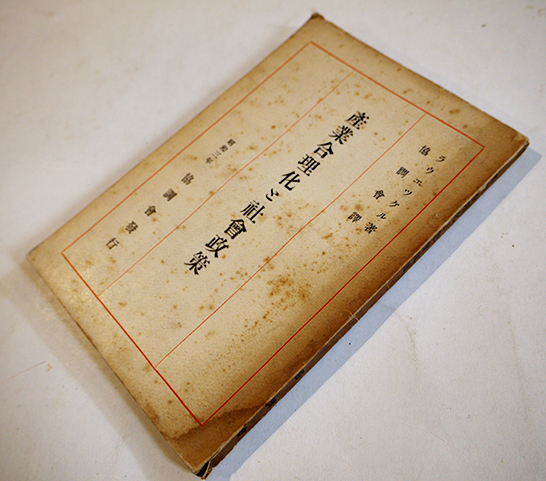 ラウエツケル著
協調會譯
產業合理化と社會政策
昭和二年 協調會發行